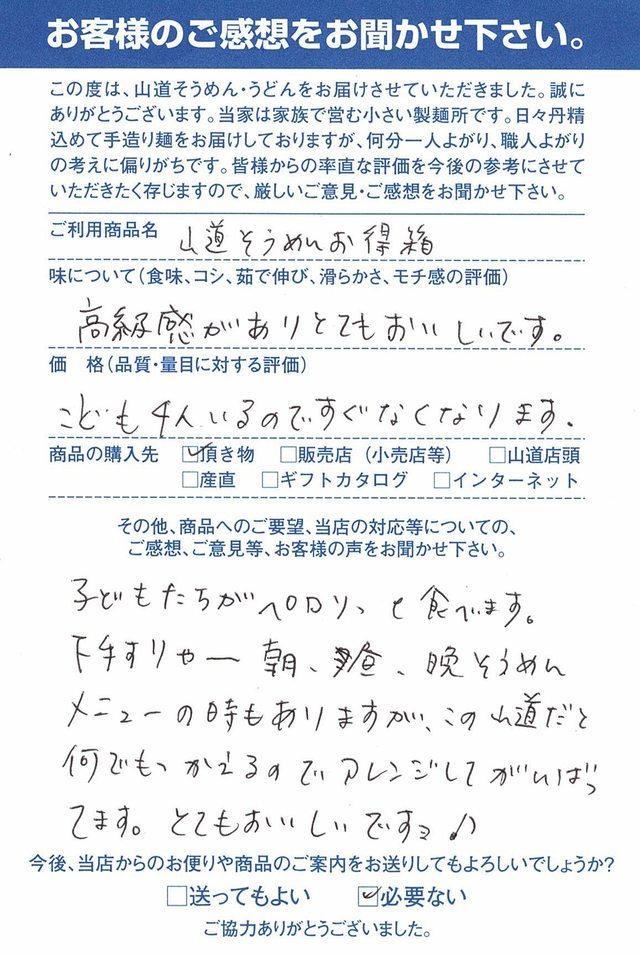 お客様のご感想をお聞かせ下さい。
この度は、山道そうめん・うどんをお届けさせていただきました。誠に
ありがとうございます。当家は家族で営む小さい製麺所です。日々丹精
込めて手造り麺をお届けしておりますが、何分一人よがり、職人よがり
の考えに偏りがちです。皆様からの率直な評価を今後の参考にさせて
いただきたく存じますので、厳しいご意見・ご感想をお聞かせ下さい。
ご利用商品名 山道そうめんお得箱
味について(食味、コシ、茹で伸び、滑らかさ、モチ感の評価)
高級感がありとてもおいしいです。
価 格(品質・量目に対する評価)
こども4人いるのですぐなくなります。
商品の購入先 ☑頂き物 □販売店(小売店等) □山道店頭
□産直 □ギフトカタログ □インターネット
その他、商品へのご要望、当店の対応等についての、
ご感想、ご意見等、お客様の声をお聞かせ下さい。
子どもたちがペロリっと食べます。
下手すりゃー朝、昼、晩そうめん
メニューの時もありますが、この山道だと
何でもつかえるのでアレンジしてがんばっ
てます。とてもおいしいですョ♪
今後、当店からのお便りや商品のご案内をお送りしてもよろしいでしょうか?
□送ってもよい ☑必要ない
ご協力ありがとうございました。